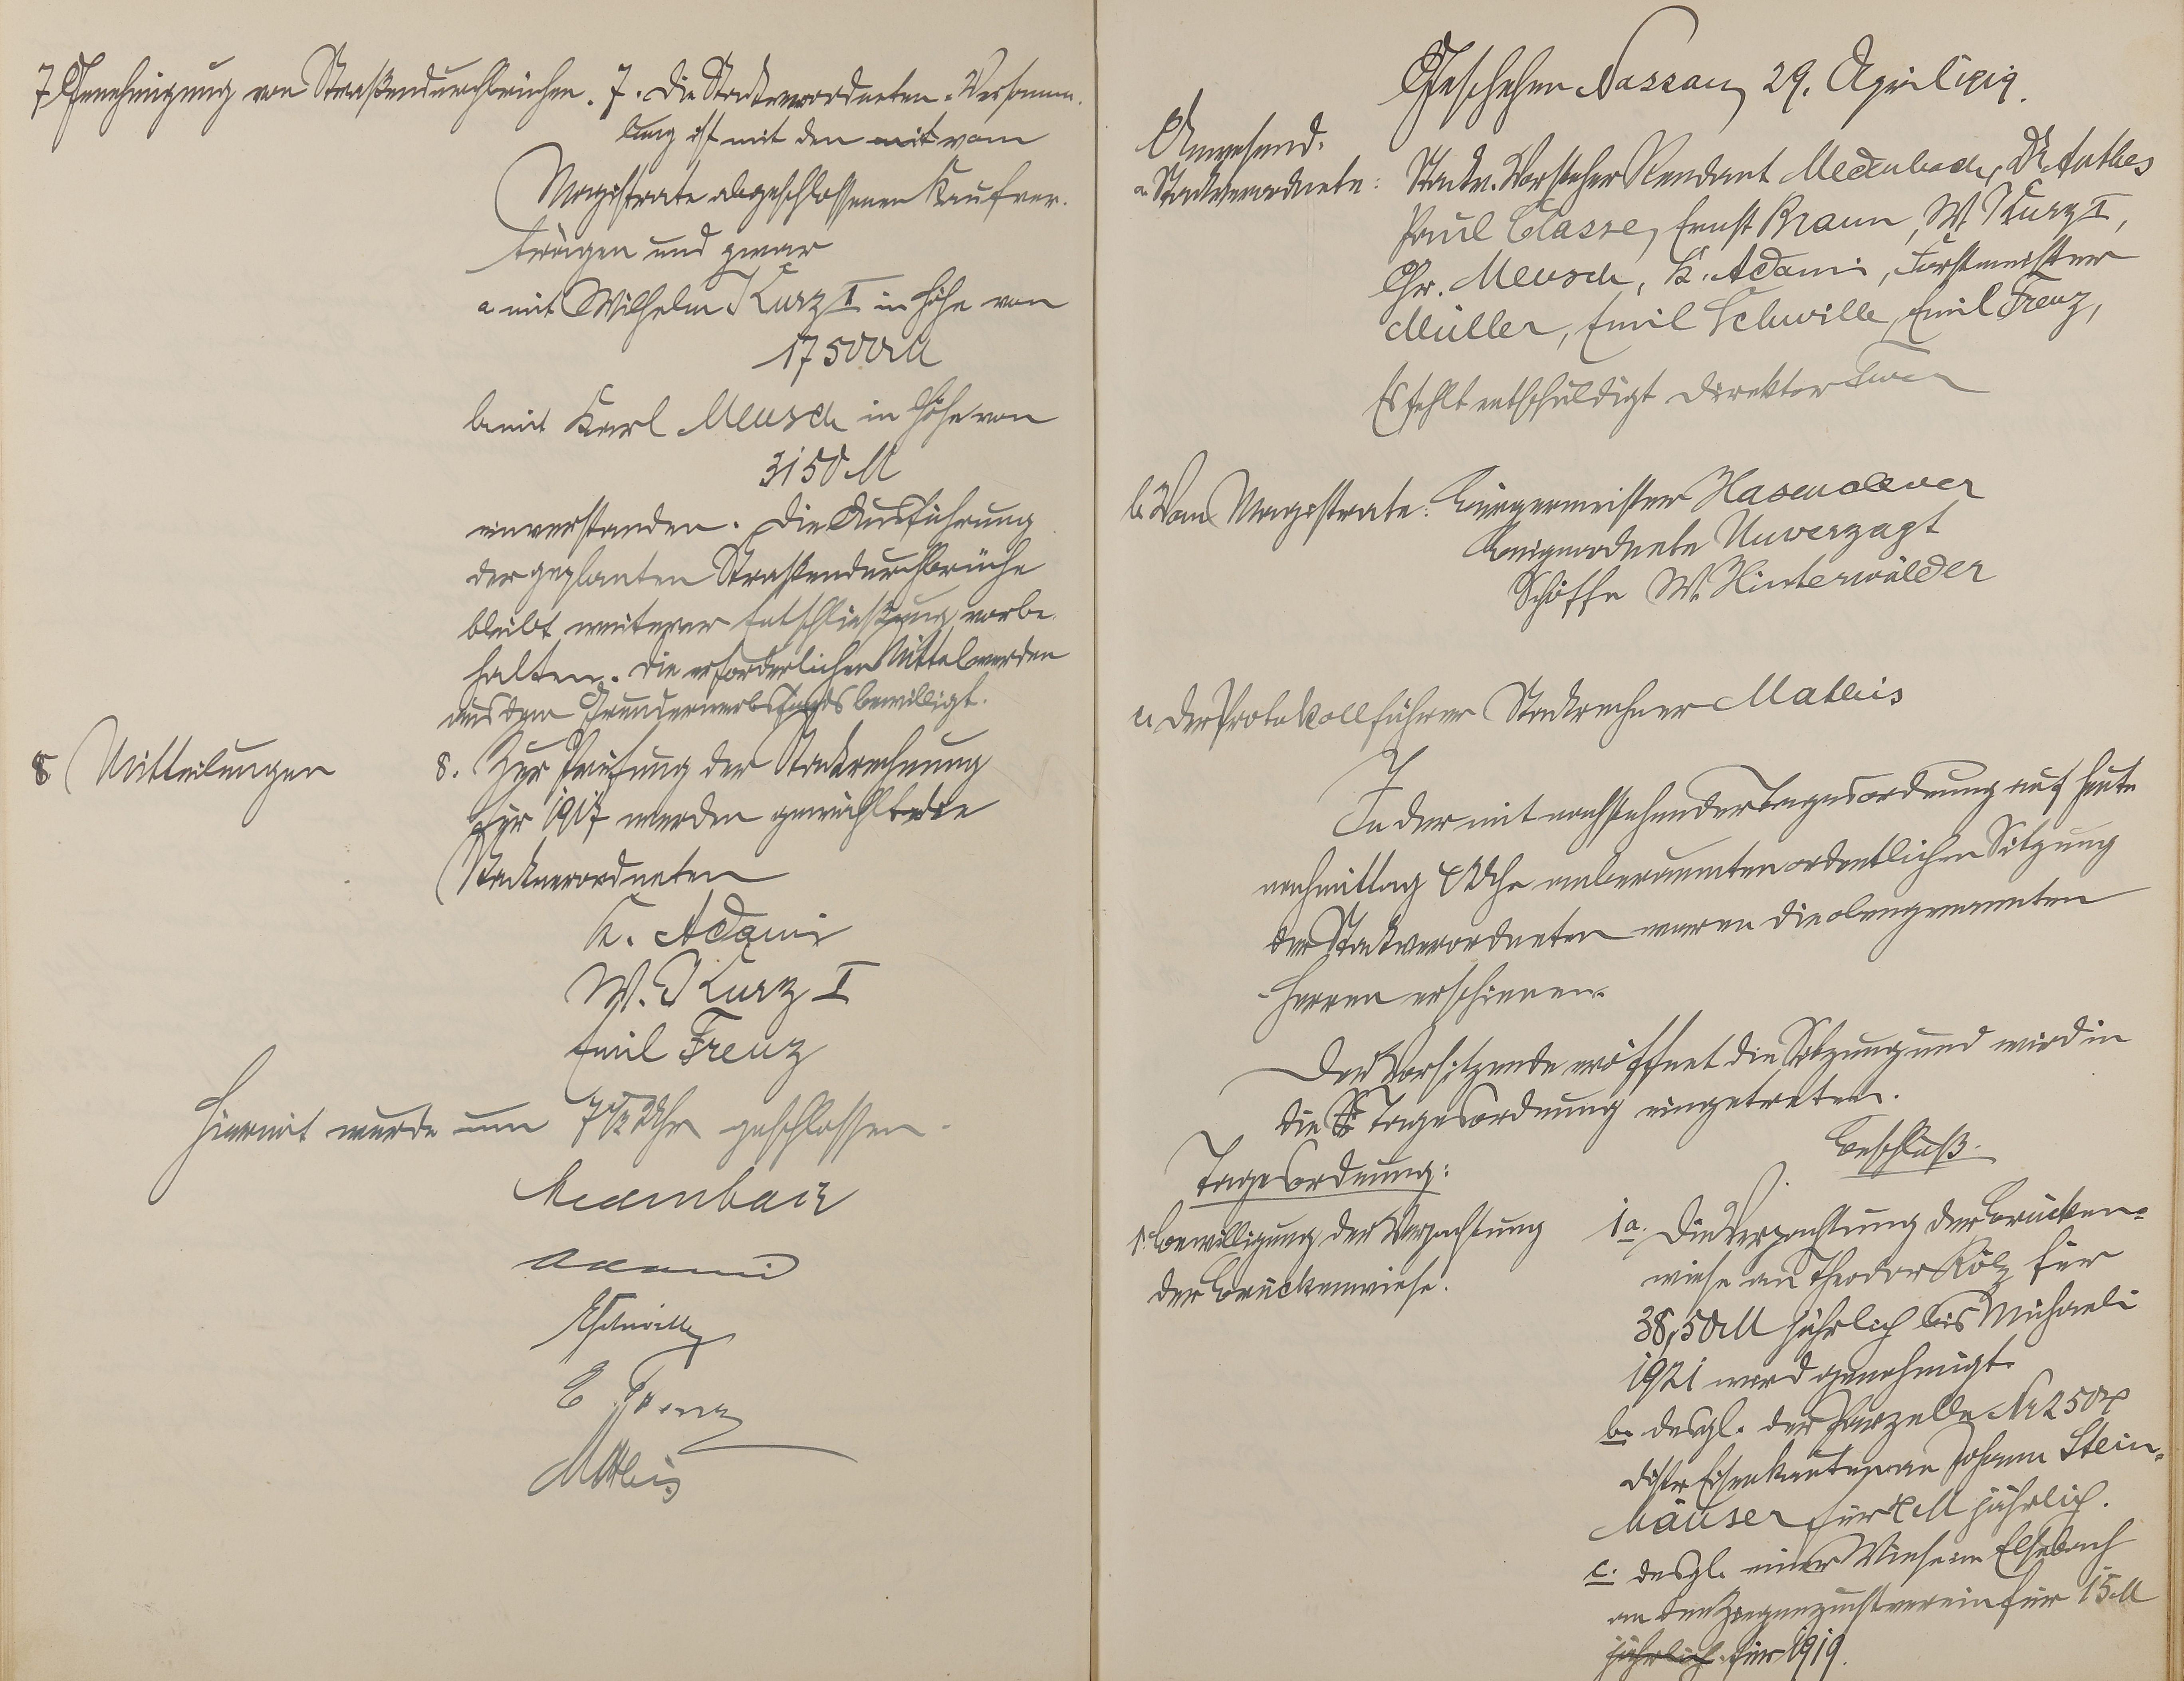 7. Genehmigung von Straßendurchbrüchen. 7. Die Stadtverordneten-Versamm-
lung ist mit den mit vom
Magistrate abgeschlossenen Kaufver-
trägen und zwar
a mit Wilhelm Kurz I in Höhe von
17500 M
b mit Karl Meusch in Höhe von
3150 M
einverstanden. Die Ausführung
der geplanten Straßendurchbrüche
bleibt weiterer Entschließung vorbe-
halten. Die erforderlichen Mittel werden
aus dem Grunderwerbsfonds bewilligt.
8. Mitteilungen 8. Zur Prüfung der Stadtrechnung
für 1917 werden gewählt die
Stadtverordneten
K. Adami
W. Kurz I
Emil Frenz
Hiermit wurde um 7 1/2 Uhr geschlossen.
Medenbach
Adami
ESchwille
E Frenz
Mathis
Geschehen Nassau, 29. April 1919.
Anwesend:
a. Stadtverordnete: Stadtv. Vorsteher Rendant Medenbach, Dr Anthes
Paul Classe, Ernst Braun, W. Kurz I,
Chr. Meusch, K. Adami, Forstmeister
Müller, Emil Schwille, Emil Frenz,
Es fehlt entschuldigt Direktor
b. Vom Magistrate: Bürgermeister Hasenclever
Beigeordnete Unverzagt
Schöffe W. Hinterwälder
c. Der Protokollführer Stadtrechner Mathis
In der mit nachstehender Tagesordnung auf heute
nachmittag 4 Uhr anberaumten ordentlichen Sitzung
der Stadtverordneten waren die obengenannten
Herren erschienen.
Der Vorsitzende eröffnet die Sitzung und wird in
die Tagesordnung eingetreten.
Beschluß.
Tagesordnung:
1. Bewilligung der Verpachtung
der Brückenwiese.
1 a. Die Verpachtung der Brücken-
wiese an Theodor Kölz für
38,50 M jährlich bis Michaeli
1921 wird genehmigt.
b. desgl. der Parzelle Nr 250
Distr Eisenkaute an Johann Stein-
häuser für M jährlich.
c. desgl. einer Wiese im Elsebach
an den Ziegenzuchtverein für 15 M
jährlich für 1919.